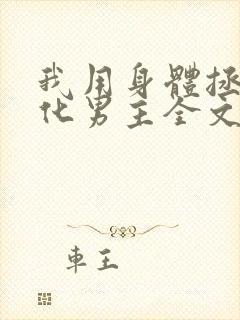 我用身體拯
化男主全文
車王